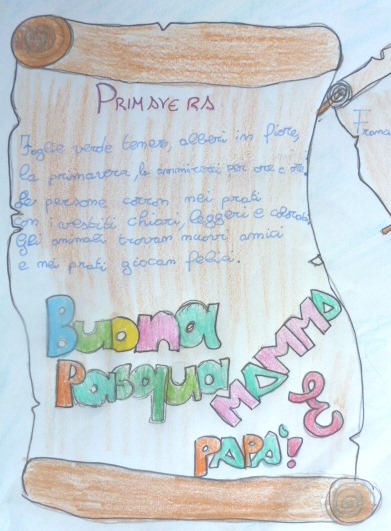 PRIMAVERA
Foglie verde tenero, alberi in fiore,
la primavera, la ammirerai per ore e ore.
Le persone corron nei prati
con i vestiti chiari, leggeri e colorati,
Gli animali trovan nuovi amici
e nei prati giocan felici.
BUONA
PASQUA MAMMA
E
PAPA'!